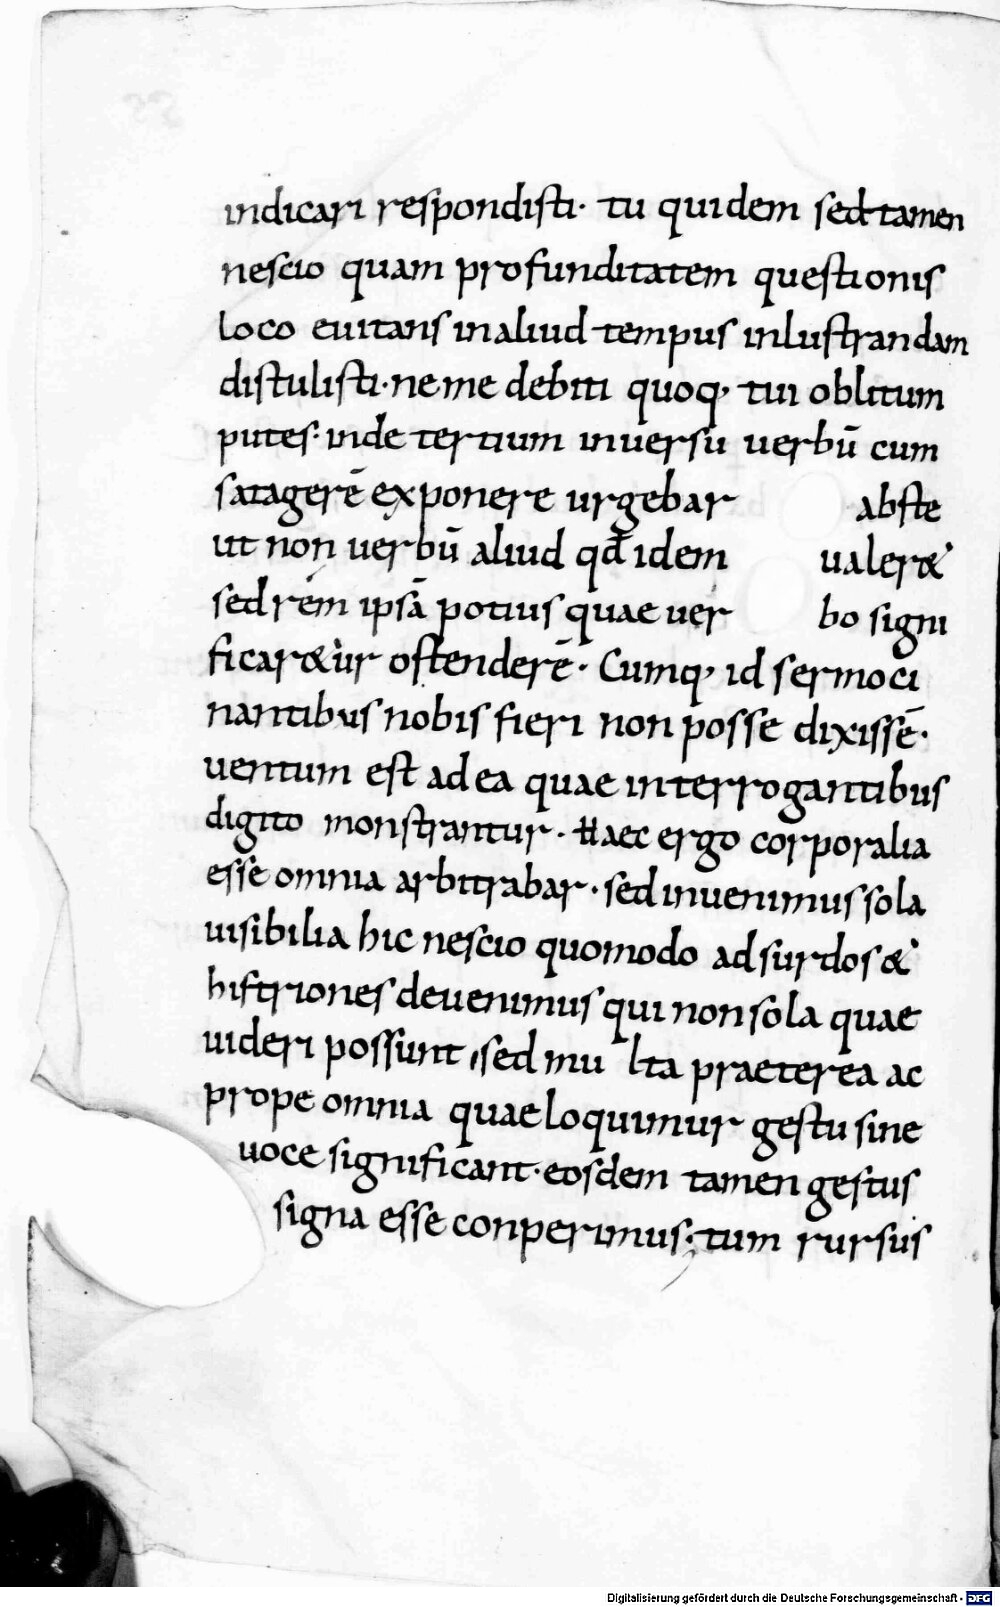 indicari respondisti· tu quidem sed tamen
nescio quam profunditatem questionis
loco euitans in aliud tempus inlustrandam
distulisti· ne me debiti quoq· tui oblitum
putes· inde tertium in uersu uerbū cum
satagerē exponere urgebar abs te
ut non uerbū aliud qđ idem ualer&
sed rēm ipsā potius quae uer bo signi
ficar&ur ostenderē· Cumq· id sermoci
nantibus nobis fieri non posse dixissē·
uentum est ad ea quae interrogantibus
digito monstrantur· Haec ergo corporalia
esse omnia arbitrabar· sed inuenimus sola
uisibilia hic nescio quomodo ad surdos &
histriones deuenimus qui non sola quae
uideri possunt, sed mu lta praeterea ac
prope omnia quae loquimur gestu sine
uoce significant· eosdem tamen gestus
signa esse conperimus; tum rursus
Digitalisierung gefördert durch die Deutsche Forschungsgemeinschaft - DFG